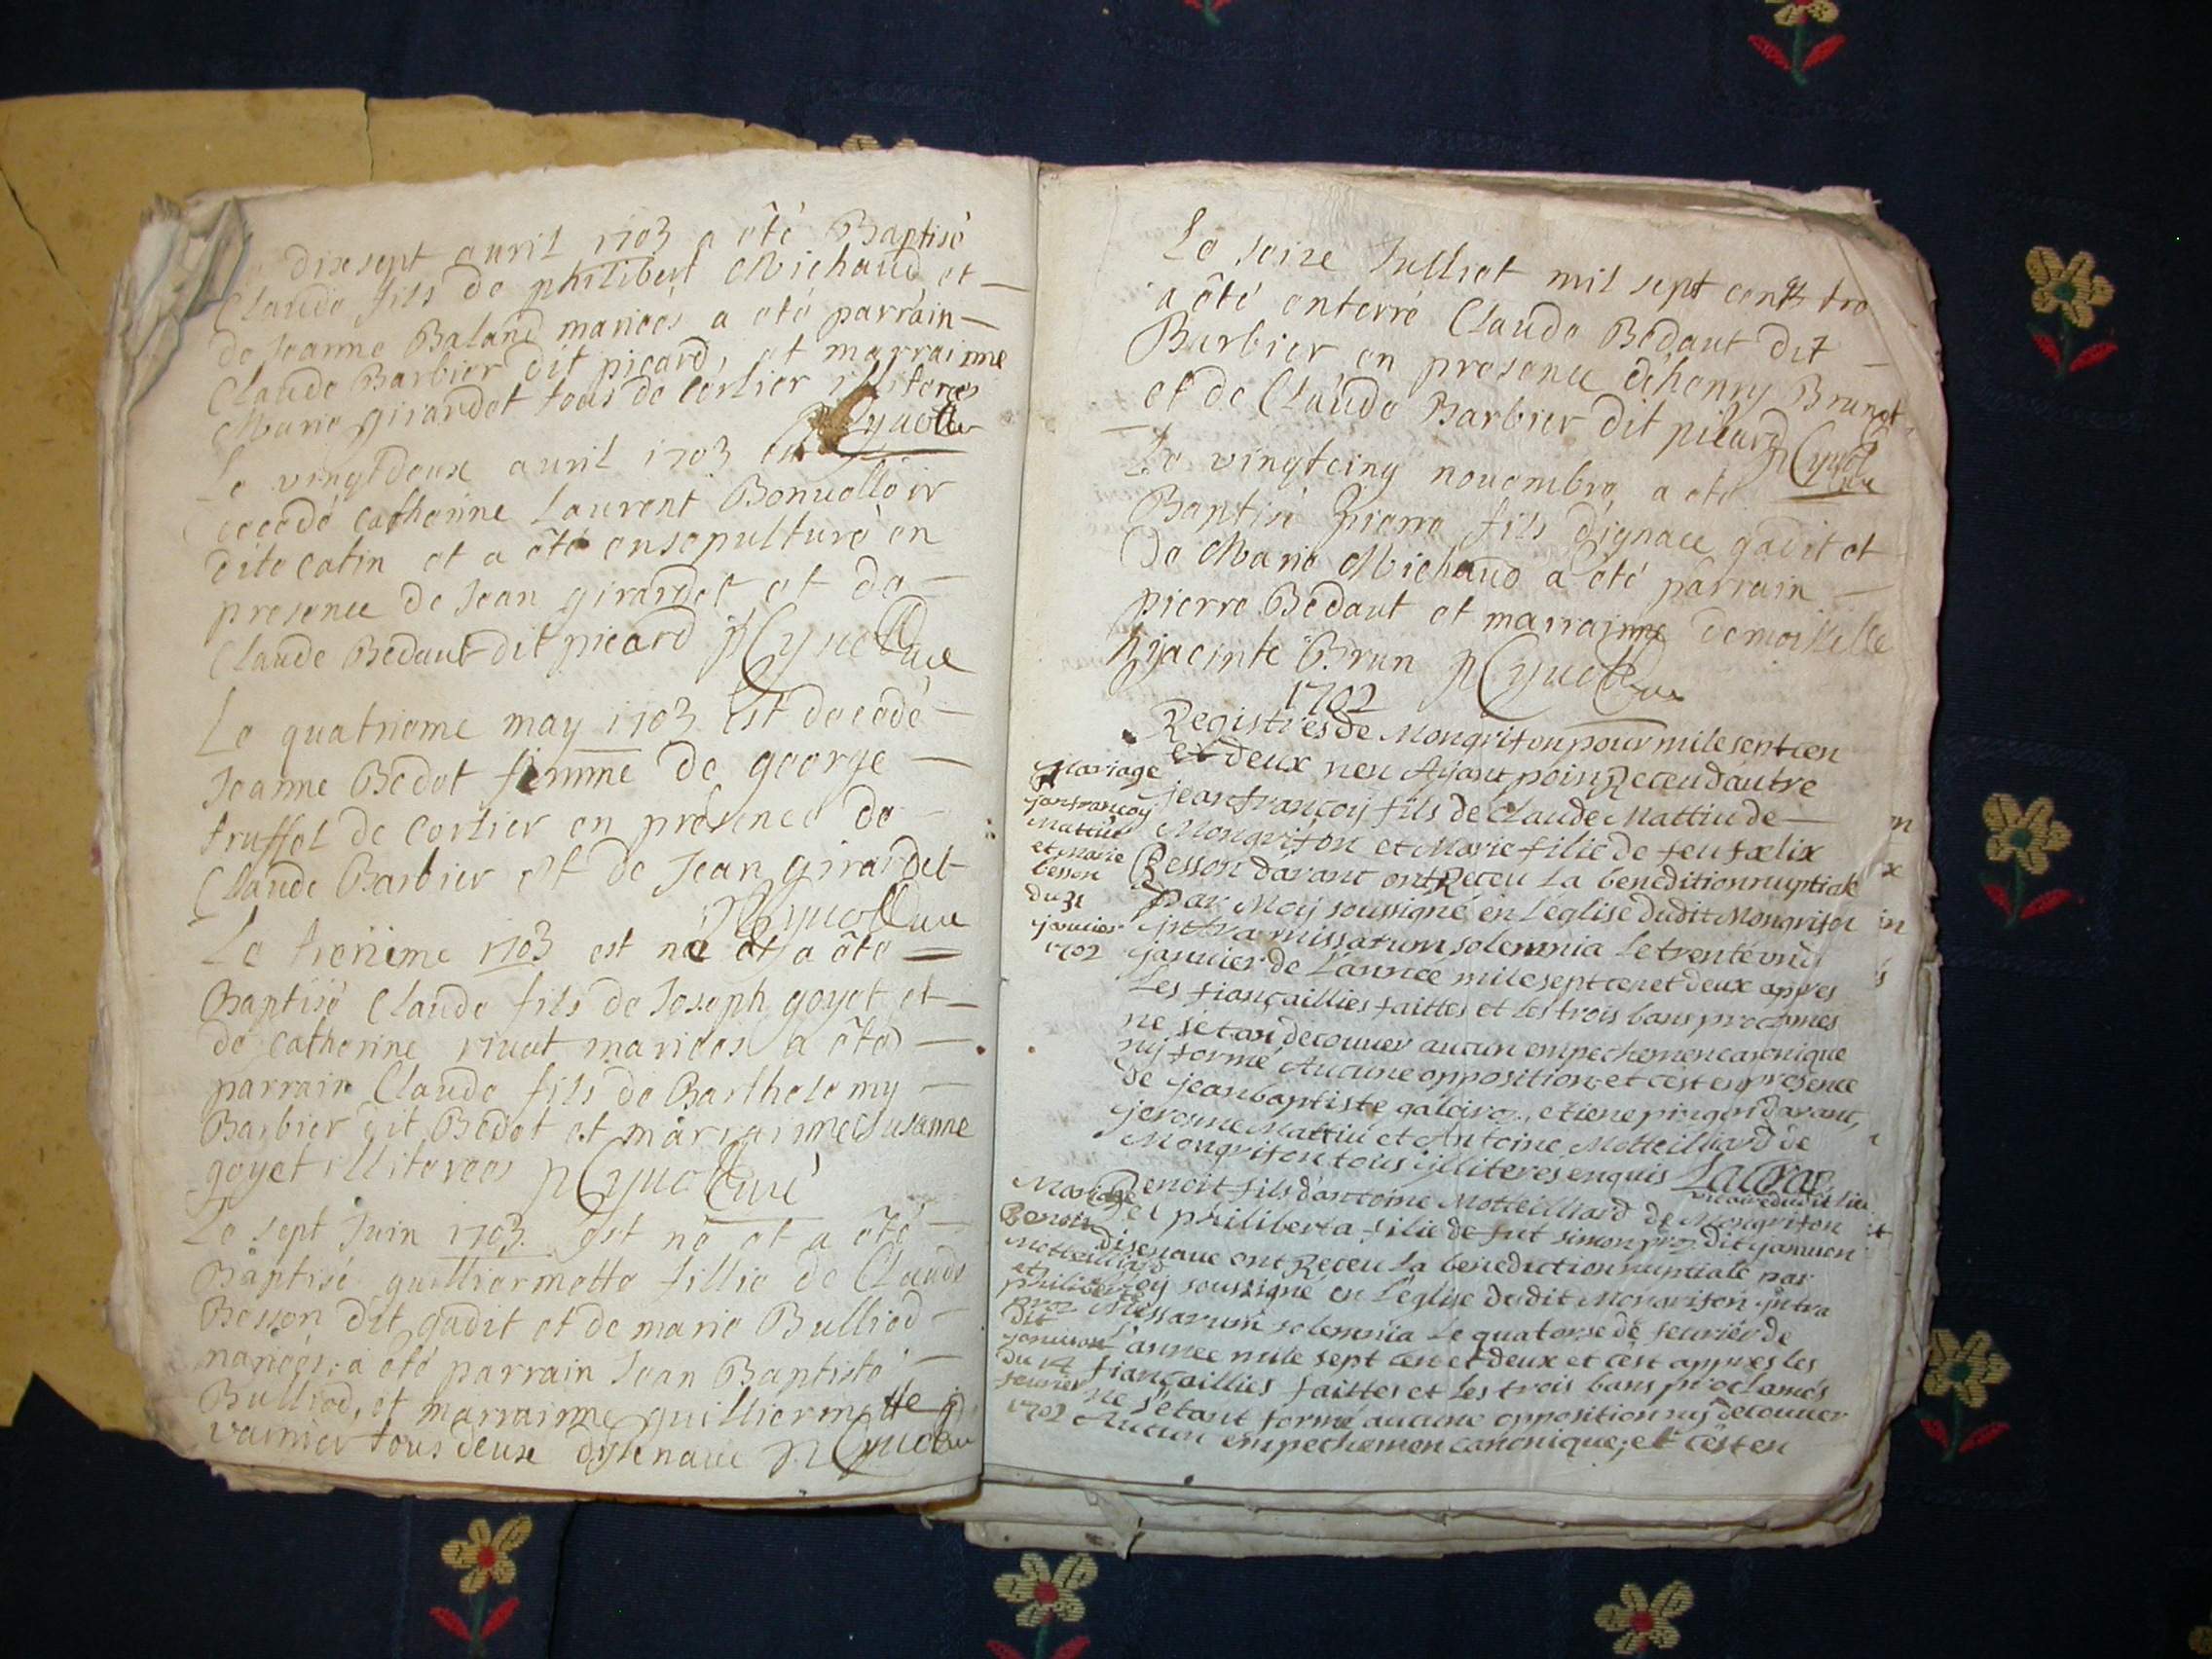 dixsept auril 1703 a été Baptisé
Claude fils de philibert Michaud et
de Jeanne Baland mariées a été parrain
Claude Barbier dit picard, et marrainne
Marie girardet tous de Corlier illiterées
Le vingtdeux auril 1703 est
decedé Catherine Laurent Bonuolloir
dite Catin et a été ensepulturé en
presence de Jean girardet et de
Claude Bedaut dit picard
Le quatrieme may 1703 est decedé
Jeanne Bedot femme de george
truffet de Corlier en presence de
Claude Barbier et de Jean girardet
Le treisieme 1703 est né et a été
Baptisé Claude fils de Joseph goyet et
de Catherine riuat mariées a été
parrain Claude fils de Barthelemy
Barbier dit Bedot et marrainne Susanne
goyet illiterées
Le sept Juin 1703 est né et a été
Baptisé guilliermette fillie de Claude
Besson dit gadit et de marie Bulliod
mariées, a été parrain Jean Baptiste
Bulliod, et marrainne guilliermette
varnier tous deux disenaue
Le seize Julliet mil sept cents tro
a été enterré Claude Bedaut dit
Barbier en presence dehenry Brunet
et de Claude Barbier dit picard
Le vingtcinq nouembre a eté
Baptisé pierre fils d'ignace gadit et
de Marie Michaud a été parrain
pierre Bedaut et marrainne demoiselle
hyacinte Brun
1702
Registres de Mongrifon pour mile sent cen
et deux nen Ayant poin Receu dautre
Mariage
jeanfrançoy
Mattiu
et Marie
besson
du 31
januier
1702
jeanfrançoy fils de Claude Mattiu de
Mongrifon et Marie filie de feu fælix
Besson daranc ont Receu la benedition nuptiale
par Moy soussigné en Leglise dudit Mongrifon
jntra missarum solemnia Le trenté vn de
januier de L'année mile sept cen et deux apres
Les fiançaillies faittes et Les trois bans proclamés
ne se tan decouuer aucun empechemen canonique
ny formé Aucune opposition et cest en presence
de jeanbaptiste galeiroz, etiene pingon darant,
jeronne Mattiu et Antoine Motteilliard de
Mongrifon tous jlliteres enquis Lacroix
vicaire dudit lieu
Mariage
Benoit
Motteilliard
et
philiberta
proz
dit
januion
du 14
feurier
1702
Benoit fils d'antoine Motteilliard de Mongrifon
et philiberta filie de fut simon proz dit januion
disenaue ont Receu La benediction nuptiale par
Moy soussigné en L'eglise dudit Mongrifon jntra
Missarum solemnia Le quatorse de feurier de
L'annee mile sept cen et deux et cest appres les
fiançaillies faittes et Les trois bans proclamés
ne s'etant formé aucune opposition ny decouuer
Aucun empechemen canonique; et c'est en